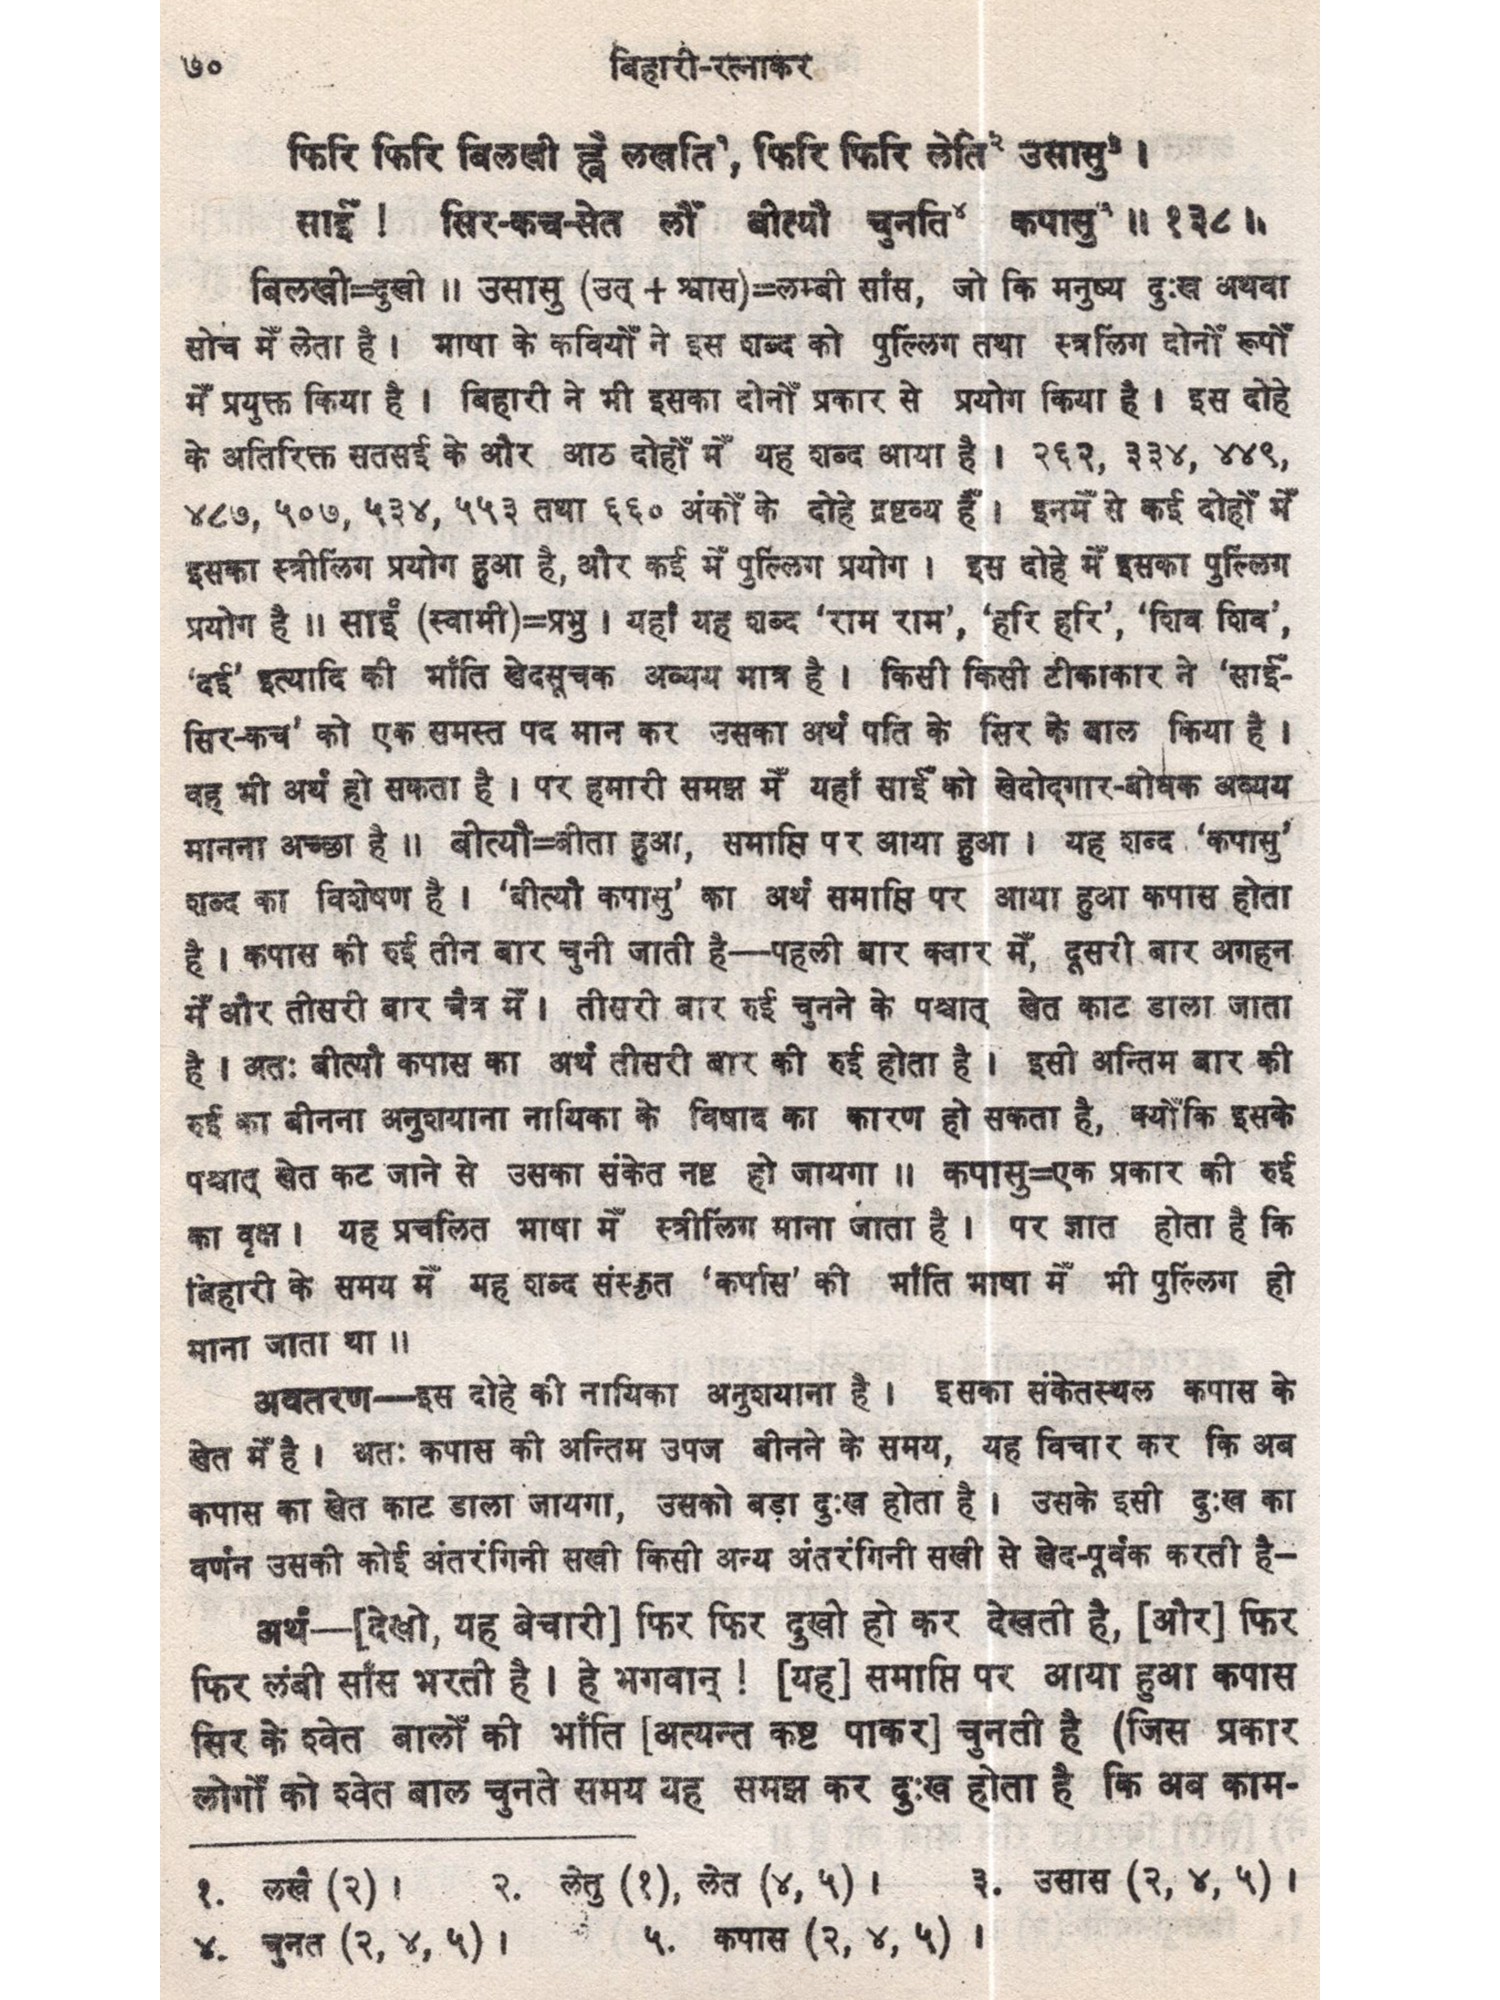 ७०
बिहारी-रत्नाकर
फिरि फिरि बिलखी ह्वै लखति१, फिरि फिरि लेति२ उसासु३ ।
साईं ! सिर-कच-सेत लौं बीत्यौ चुनति४ कपासु५ ॥ १३८ ॥
बिलखी=दुखी ॥ उसासु (उत् + श्वास)=लम्बी साँस, जो कि मनुष्य दुःख अथवा
सोच मेँ लेता है । भाषा के कवियोँ ने इस शब्द को पुल्लिंग तथा स्त्रलिंग दोनोँ रूपोँ
मेँ प्रयुक्त किया है । बिहारी ने भी इसका दोनोँ प्रकार से प्रयोग किया है । इस दोहे
के अतिरिक्त सतसई के और आठ दोहोँ मेँ यह शब्द आया है । २६२, ३३४, ४४९,
४८७, ५०७, ५३४, ५५३ तथा ६६० अंकोँ के दोहे द्रष्टव्य हैँ । इनमेँ से कई दोहोँ मेँ
इसका स्त्रीलिंग प्रयोग हुआ है, और कई मेँ पुल्लिंग प्रयोग । इस दोहे मेँ इसका पुल्लिंग
प्रयोग है ॥ साईं (स्वामी)=प्रभु । यहाँ यह शब्द ‘राम राम’, ‘हरि हरि’, ‘शिव शिव’,
‘दई’ इत्यादि की भाँति खेदसूचक अव्यय मात्र है । किसी किसी टीकाकार ने ‘साईं-
सिर-कच’ को एक समस्त पद मान कर उसका अर्थ पति के सिर के बाल किया है ।
वह भी अर्थ हो सकता है । पर हमारी समझ मेँ यहाँ साईं को खेदोद्गार-बोधक अव्यय
मानना अच्छा है ॥ बीत्यौ=बीता हुआ, समाप्ति पर आया हुआ । यह शब्द ‘कपासु’
शब्द का विशेषण है । ‘बीत्यौ कपासु’ का अर्थ समाप्ति पर आया हुआ कपास होता
है । कपास की रुई तीन बार चुनी जाती है—पहली बार क्वार मेँ, दूसरी बार अगहन
मेँ और तीसरी बार चैत्र मेँ । तीसरी बार रुई चुनने के पश्चात् खेत काट डाला जाता
है । अतः बीत्यौ कपास का अर्थ तीसरी बार की रुई होता है । इसी अन्तिम बार की
रुई का बीनना अनुशयाना नायिका के विषाद का कारण हो सकता है, क्योँकि इसके
पश्चात् खेत कट जाने से उसका संकेत नष्ट हो जायगा ॥ कपासु=एक प्रकार की रुई
का वृक्ष । यह प्रचलित भाषा मेँ स्त्रीलिंग माना जाता है । पर ज्ञात होता है कि
बिहारी के समय मेँ यह शब्द संस्कृत ‘कर्पास’ की भाँति भाषा मेँ भी पुल्लिंग ही
माना जाता था ॥
अवतरण—इस दोहे की नायिका अनुशयाना है । इसका संकेतस्थल कपास के
खेत मेँ है । अतः कपास की अन्तिम उपज बीनने के समय, यह विचार कर कि अब
कपास का खेत काट डाला जायगा, उसको बड़ा दुःख होता है । उसके इसी दुःख का
वर्णन उसकी कोई अंतरंगिनी सखी किसी अन्य अंतरंगिनी सखी से खेद-पूर्वक करती है—
अर्थ—[देखो, यह बेचारी] फिर फिर दुखी हो कर देखती है, [और] फिर
फिर लंबी साँस भरती है । हे भगवान् ! [यह] समाप्ति पर आया हुआ कपास
सिर के श्वेत बालोँ की भाँति [अत्यन्त कष्ट पाकर] चुनती है (जिस प्रकार
लोगोँ को श्वेत बाल चुनते समय यह समझ कर दुःख होता है कि अब काम-
१. लखै (२) । २. लेतु (१), लेत (४, ५) । ३. उसास (२, ४, ५) ।
४. चुनत (२, ४, ५) । ५. कपास (२, ४, ५) ।